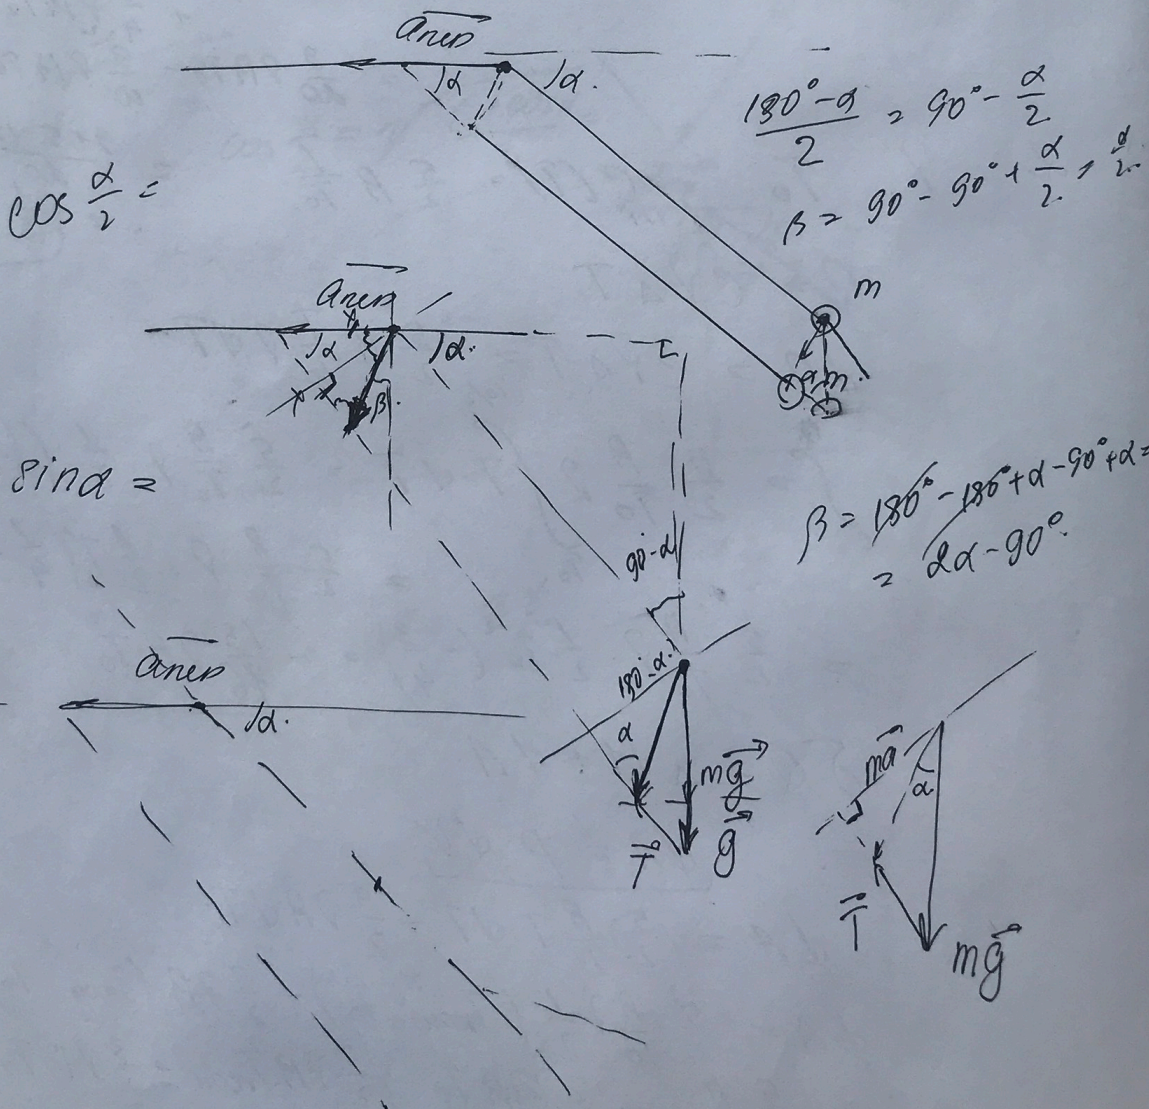 aпер
α
α.
(180° - α)/2 = 90° - α/2
cos α/2 =
β = 90° - 90° + α/2 = α/2.
m
aпер
α
α.
m.
β.
sinα =
β = 180° - 180° + α - 90° + α =
= 2α - 90°.
90° - α
aпер
180° - α.
α.
α
mg
ma
α
T
g
T
mg